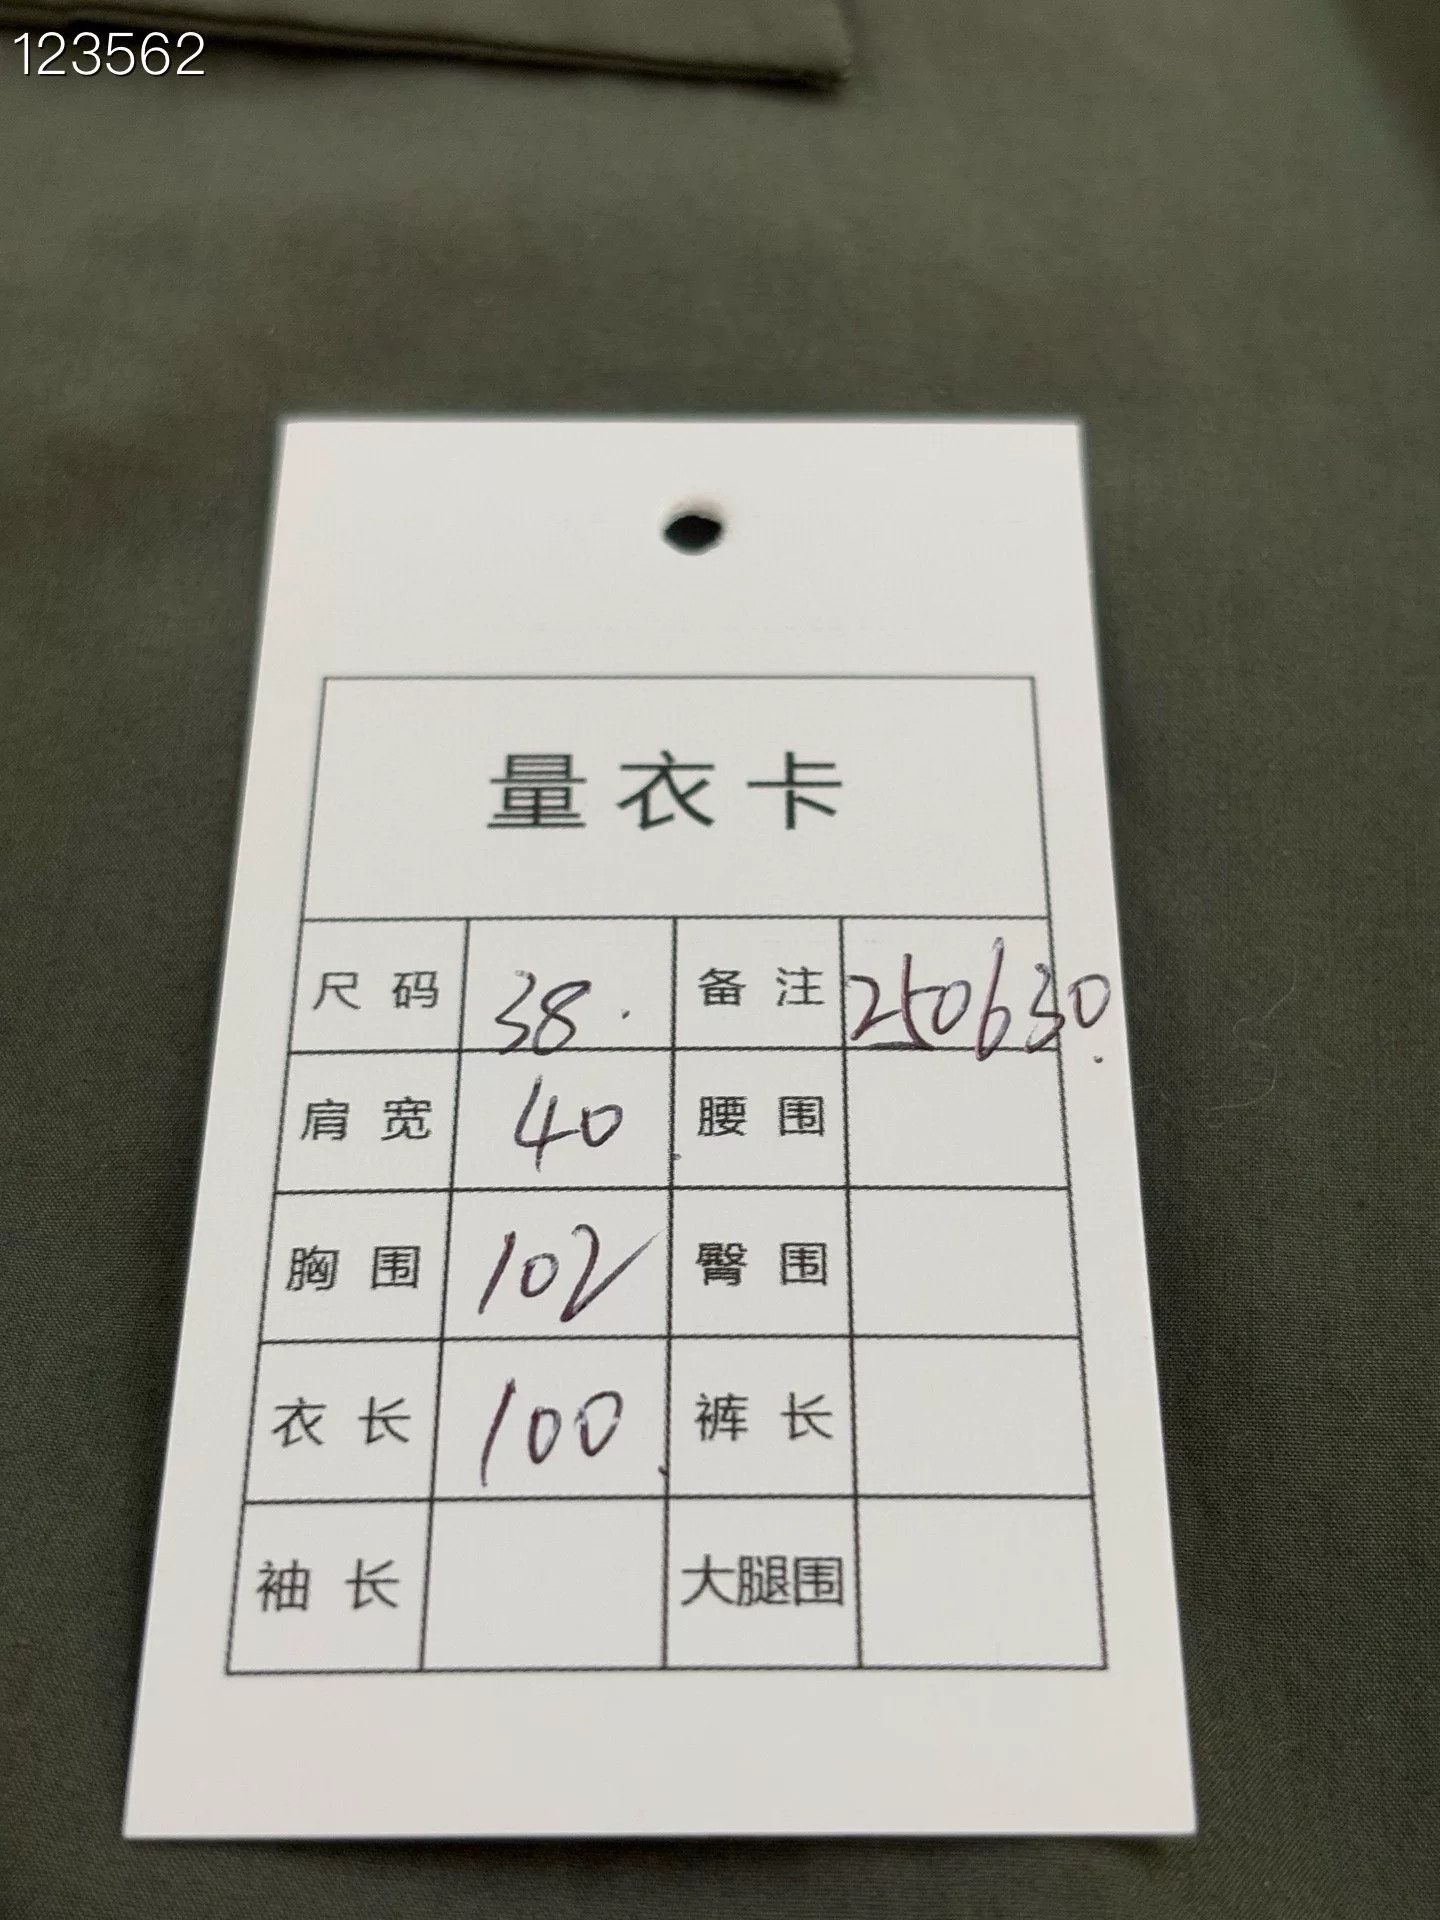 123562
量衣卡
尺码 38. 备注 250630.
肩宽 40 腰围
胸围 102 臀围
衣长 100. 裤长
袖长 大腿围